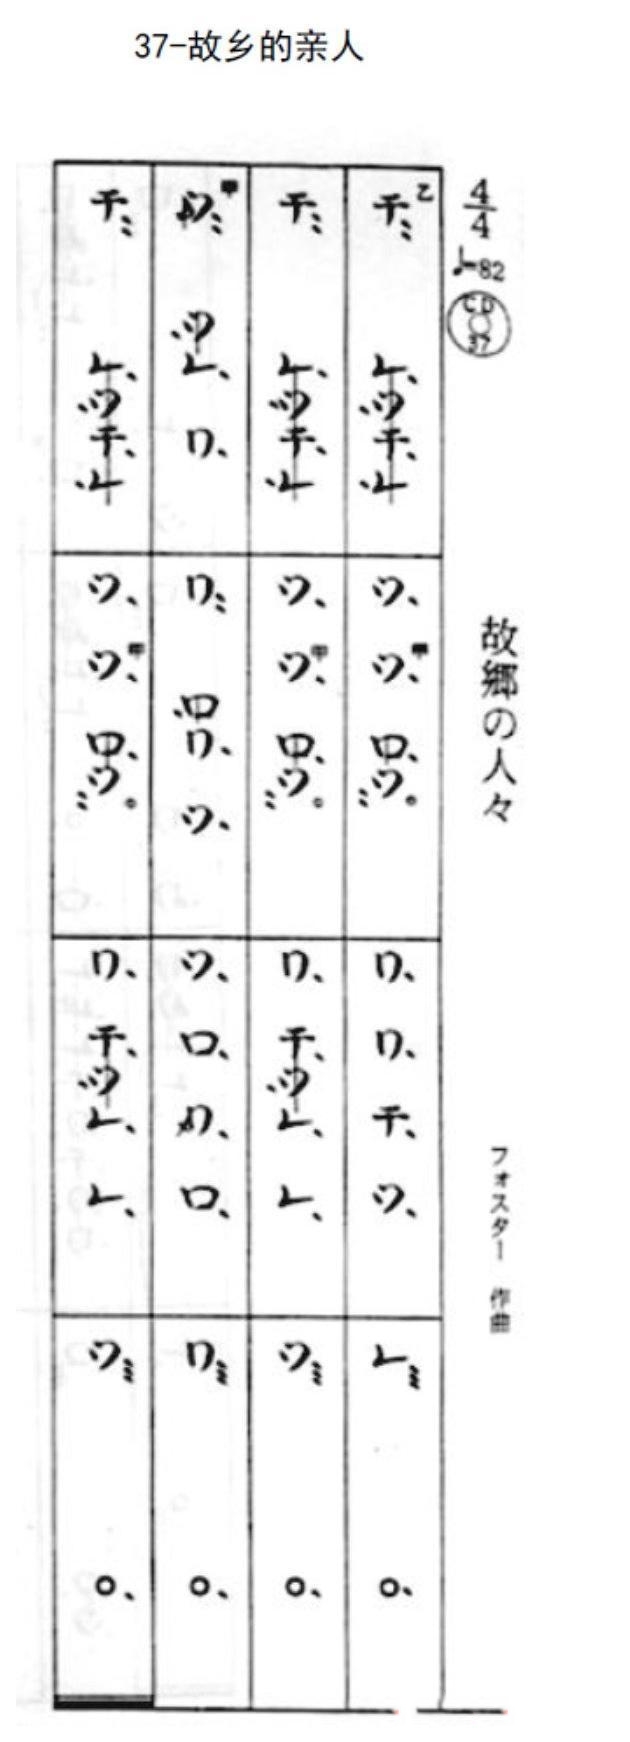 37-故乡的亲人
4/4
♩=82
CD 37
故郷の人々
フォスター 作曲
乙 チ レ ツ チ レ ツ 甲 ツ ロ ツ リ リ チ ツ レ ○
チ レ ツ チ レ ツ 甲 ツ ロ ツ リ チ ツ レ レ ツ ○
甲 ツ レ リ リ ロ リ ツ ツ ロ ロ リ ○
チ レ ツ チ レ ツ 甲 ツ ロ ツ リ チ ツ レ レ ツ ○